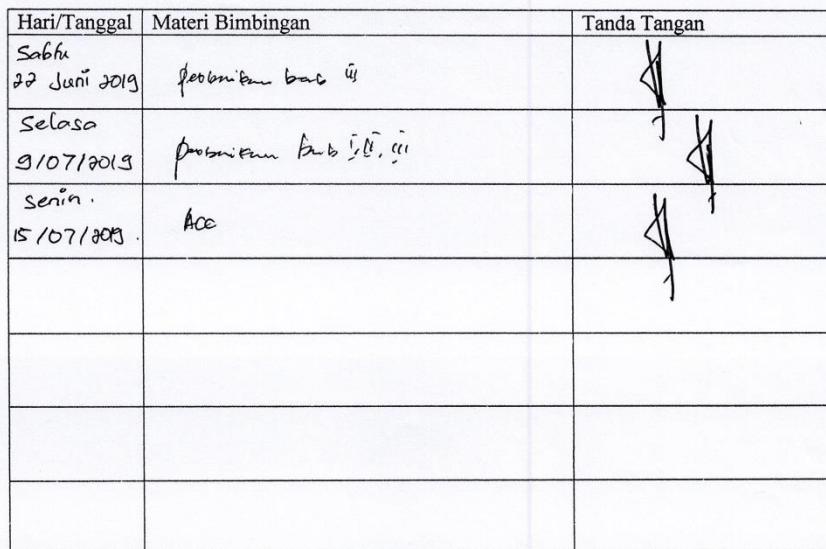 Hari/Tanggal Materi Bimbingan Tanda Tangan
Sabtu
22 Juni 2019 perbaikan bab iii
Selasa
9/07/2019 perbaikan bab I, II, iii
Senin.
15/07/2019. Acc